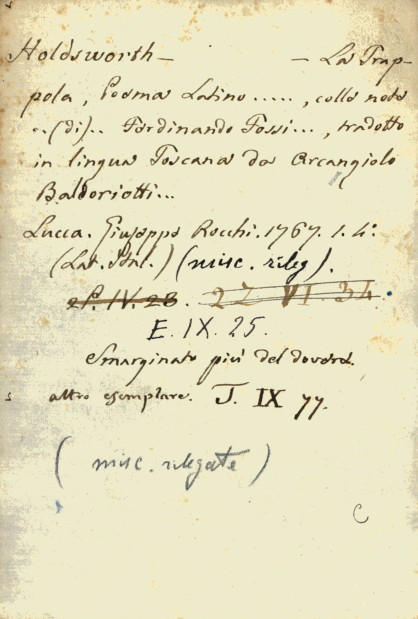 Holdsworth — — La Trap-
pola, Poema Latino ....., colle note
..(di).. Ferdinando Fossi..., tradotto
in lingua Toscana da Arcangiolo
Baldoriotti...
Lucca. Giuseppe Rocchi. 1767. 1. 4°.
(Lat. Ital.) (misc. rileg).
2P. IV. 28. 22 VI. 34.
E. IX. 25.
Smarginato più del dovere.
altro esemplare. J. IX 77.
(misc. rilegate)
C